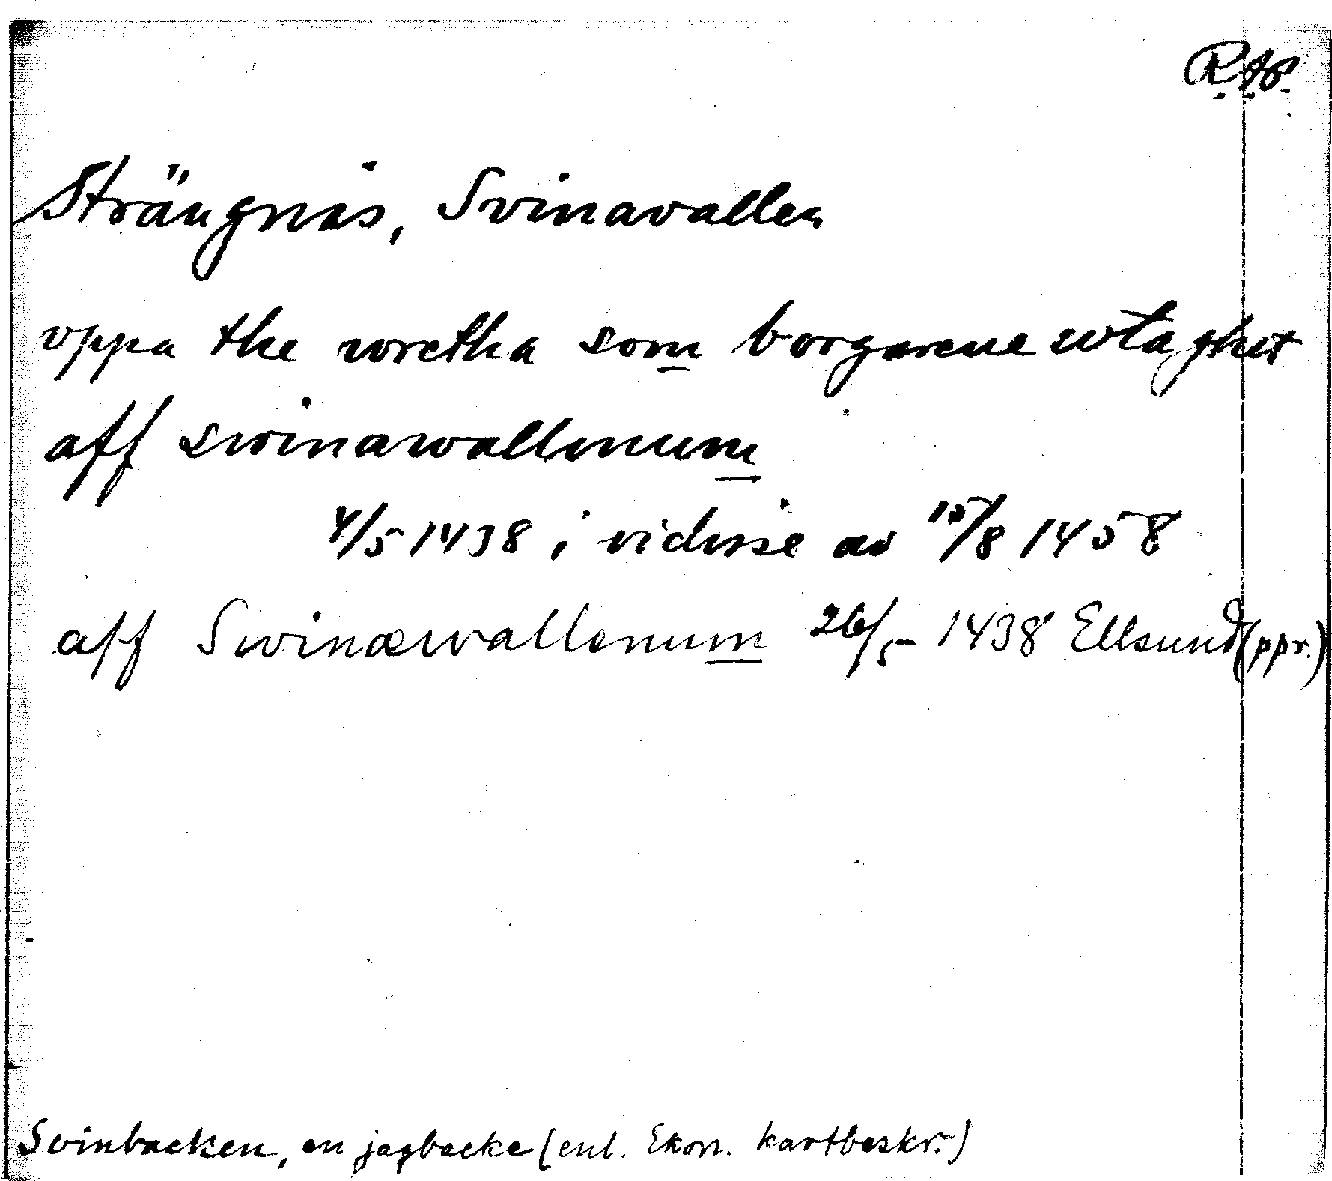 R.A.P.
Strängnäs, Svinavallen
oppa the wretha som borgarene wtaghet
aff swinawallenum
4/5 1438 i vidisse av 15/8 1458
aff Swinæwallenum 26/5 1438 Ellsund (ppr.)
Svinbacken, en jagbacke (enl. Ekon. kartbeskr.)